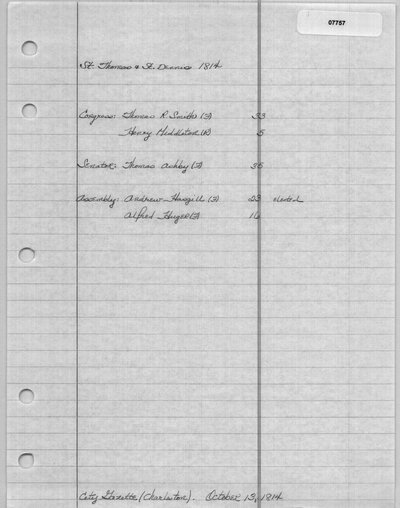 07757
St. Thomas & St. Dennis 1814
Congress: Thomas R. Smith (F) 33
Henry Middleton (R) 5
Senator: Thomas Ashby (F) 36
Assembly: Andrew Hasgill (F) 23 elected
Alfred Huger (F) 16
City Gazette (Charleston). October 13, 1814